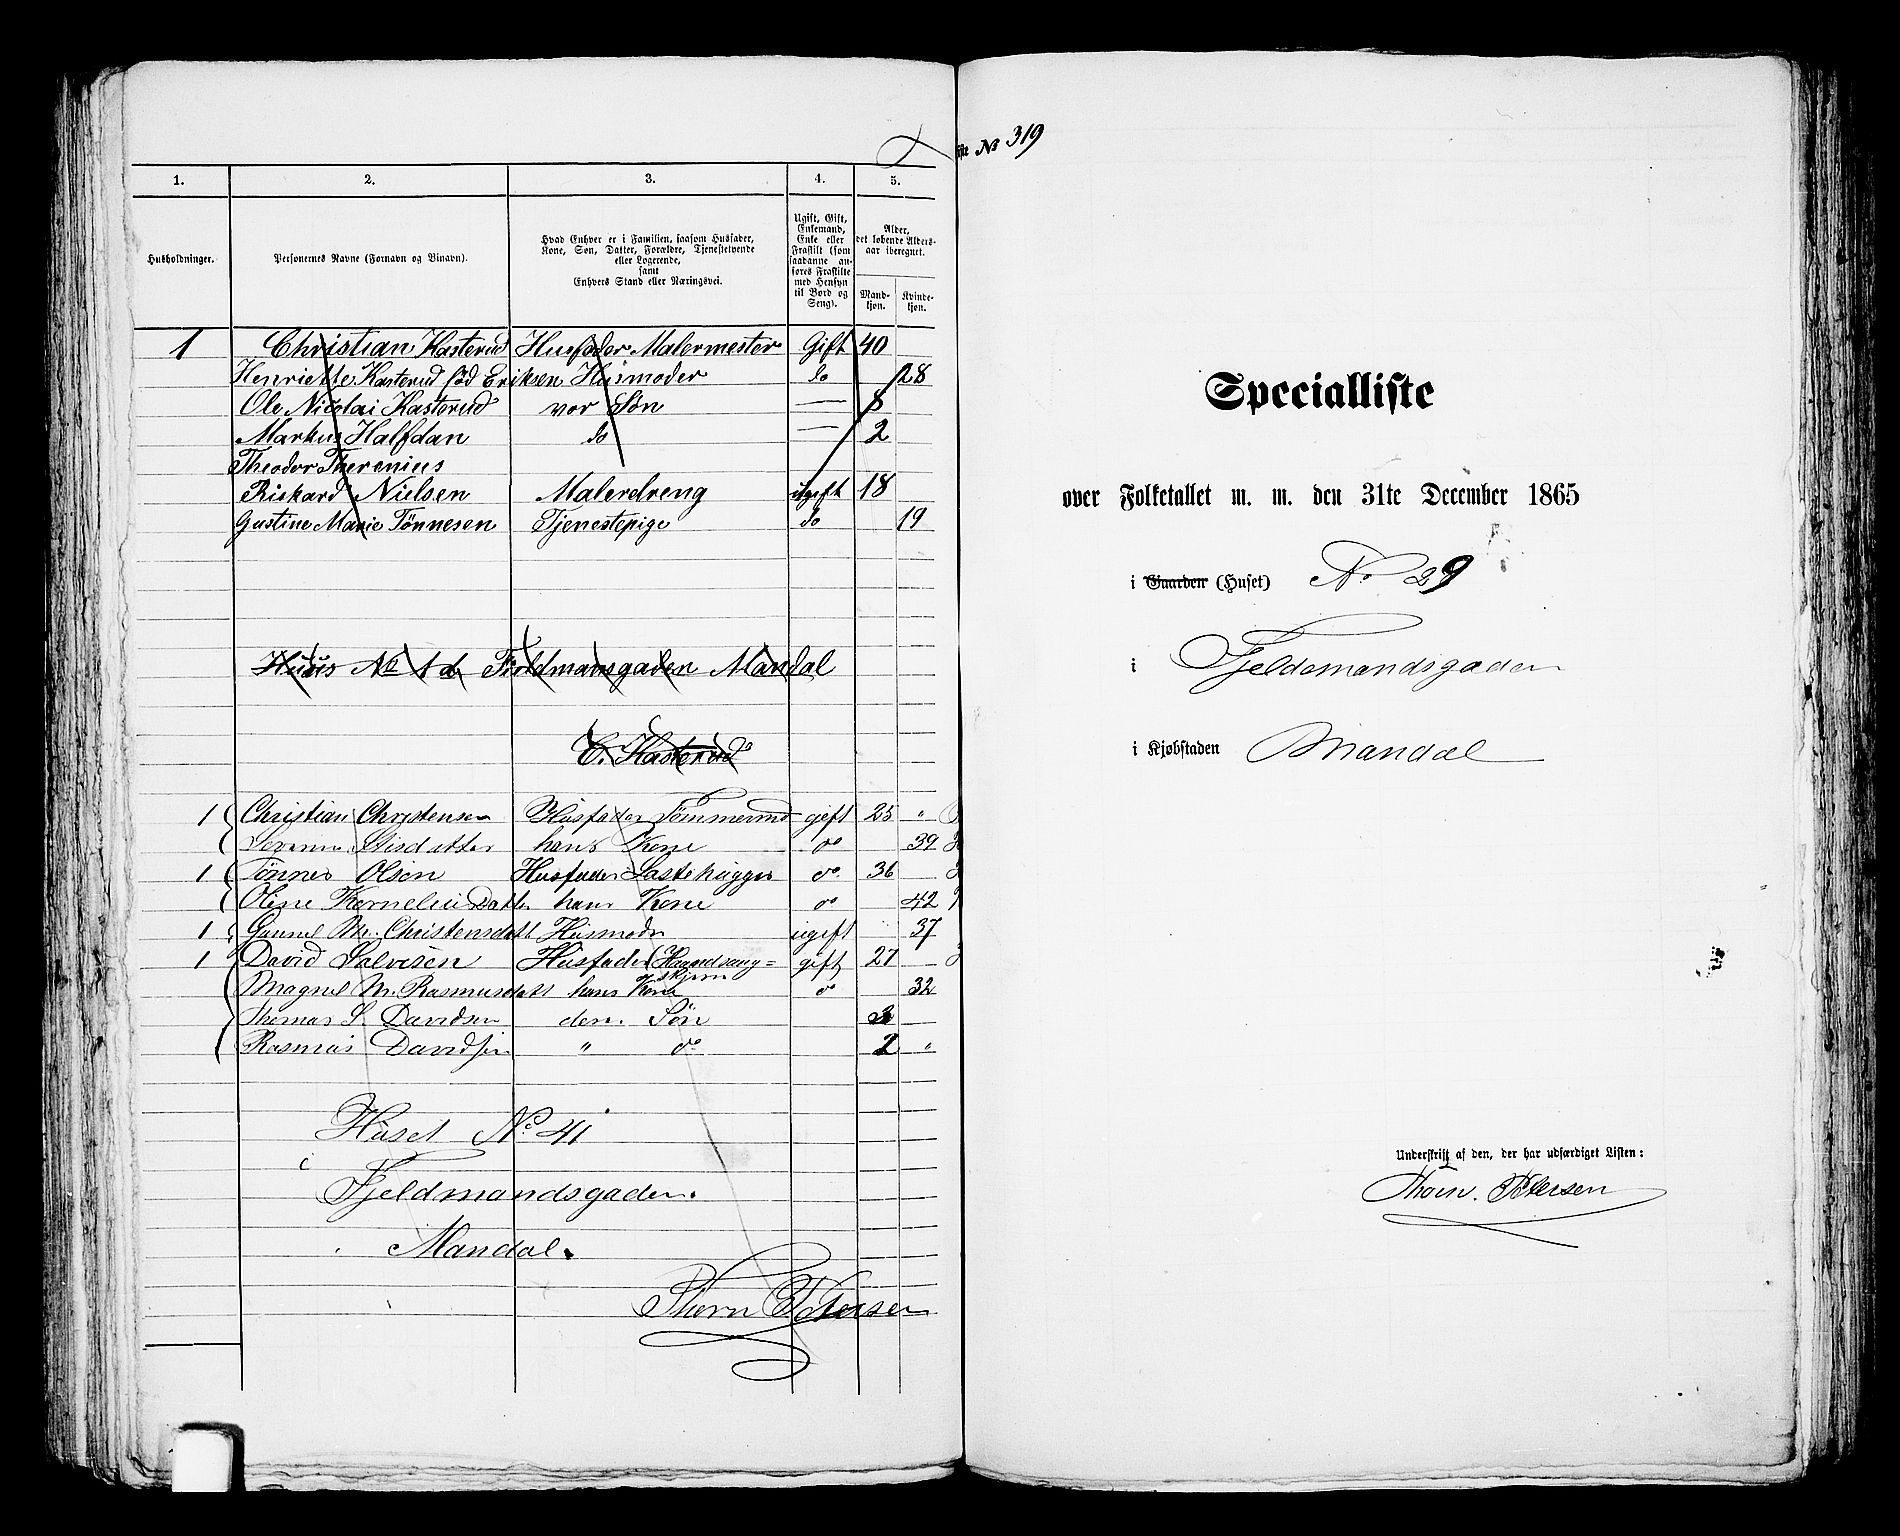 1.
2.
3.
4.
5.
Husholdninger.
Personernes Navne (Fornavn og Binavn).
Hvad Enhver er i Familien, saasom Husfader,
Kone, Søn, Datter, Forældre, Tjenestetyende
eller Logerende,
samt
Enhvers Stand eller Næringsvei.
Ugift, Gift,
Enkemand,
Enke eller
Fraskilt (som
saadanne an-
føres Fraskilte
med Hensyn
til Bord og
Seng).
Alder,
det løbende Alders-
aar iberegnet.
Mand-
kjøn.
Kvinde-
kjøn.
1 Christian Kasterud Husfader Malermester Gift 40
Henriette Kasterud fød Eriksen Husmoder do 28
Ole Nicolai Kasterud vor Søn — 8
Markus Halfdan do — 2
Theodor Therenius
Rickard Nielsen Malerdreng ugift 18
Gustine Marie Tønnesen Tjenestepige do 19
Huus No 1 d Fieldmansgaden Mandal
C. Kasterud
1 Christian Christensen Husfader Tømmermd gift 25 "
hans Kone do 39
1 Tønnes Olsen Husfader Lastehugger do 36
Oline Korneliusdatt. hans Kone do 42
1 Gunnel Mr. Christensdatt Husmodr ugift 37
1 David Salvesen Husfader (Haandværg= gift 27
Magnel M. Rasmusdatt hans Kone do 32
Thomas S. Davidsen den. Søn 3
Rasmus Davidsen " do 2 "
Huset No. 41
i
Fjeldmandsgaden.
Mandal.
Thorn Petersen
iste No 319
Specialliste
over Folketallet m. m. den 31te December 1865
i Gaarden (Huset) No. 29
i Fjeldemandsgaden
i Kjøbstaden Mandal
Underskrift af den, der har udfærdiget Listen:
Thorn. Petersen